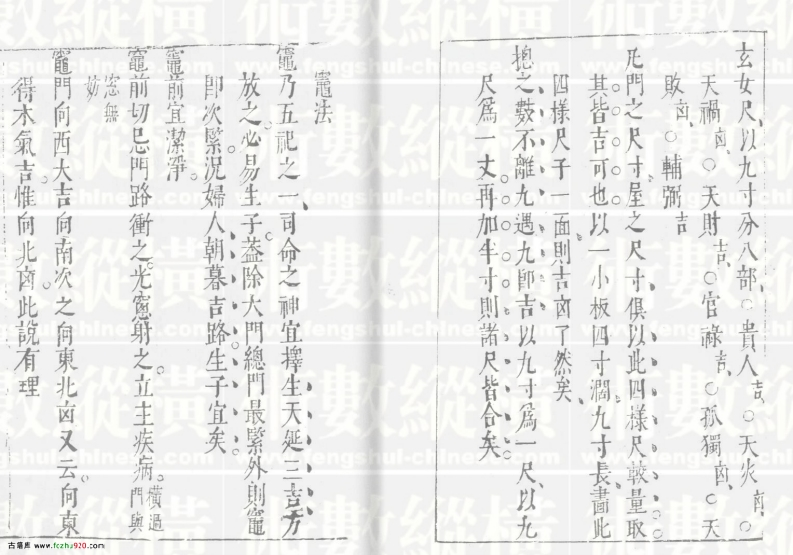 玄女尺以九寸分八部○貴人吉○天火凶○
天禍凶○天財吉○官祿吉○孤獨凶○天
敗凶○輔弼吉
凡門之尺寸屋之尺寸俱以此四樣尺較量取
其皆吉可也以一小板四寸濶九寸長畵此
四樣尺子一面則吉凶了然矣
揔之數不離九遇九卽吉以九寸爲一尺以九
尺爲一丈再加半寸則諸尺皆合矣
竈法
竈乃五祀之一司命之神宜擇生天延三吉方
放之必易生子葢除大門總門最緊外則竈
卽次緊況婦人朝暮吉路生子宜矣
竈前宜潔淨
竈前切忌門路衝之光窻射之立主疾病橫過門與
窓無妨
竈門向西大吉向南次之向東北凶又云向東
得木氣吉惟向北凶此說有理
古籍库 www.fozhu920.com
術數縱橫
www.fengshui-chinese.com